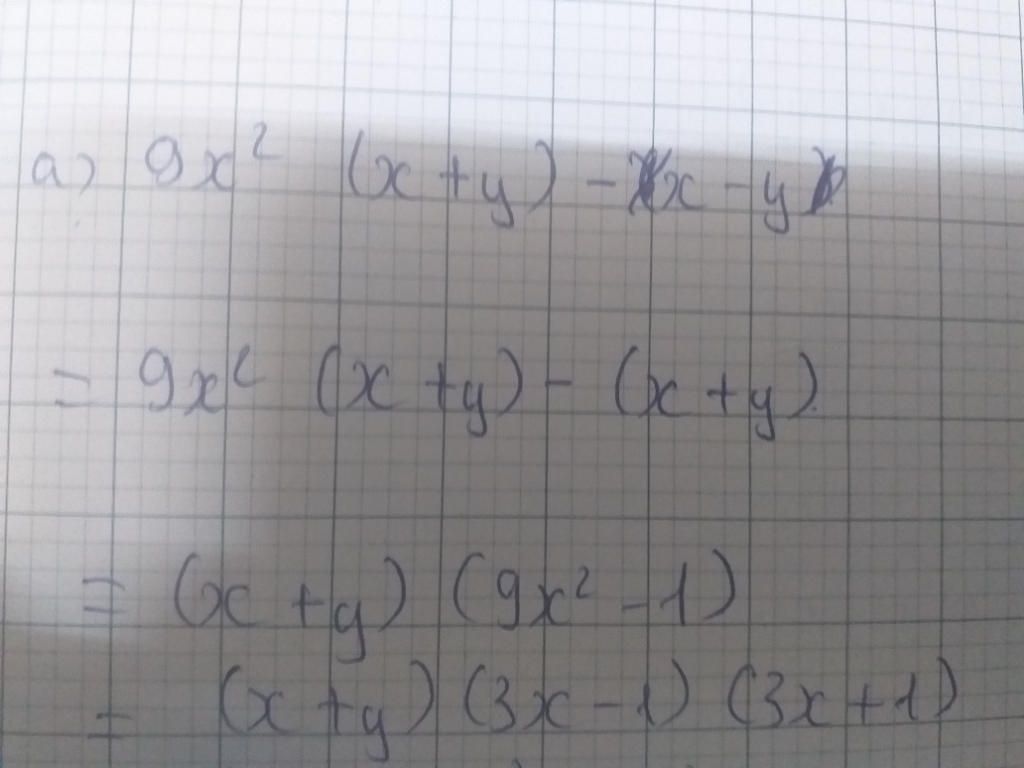 a) 9x² (x + y) - x - y
= 9x² (x + y) - (x + y)
= (x + y) (9x² - 1)
= (x + y) (3x - 1) (3x + 1)